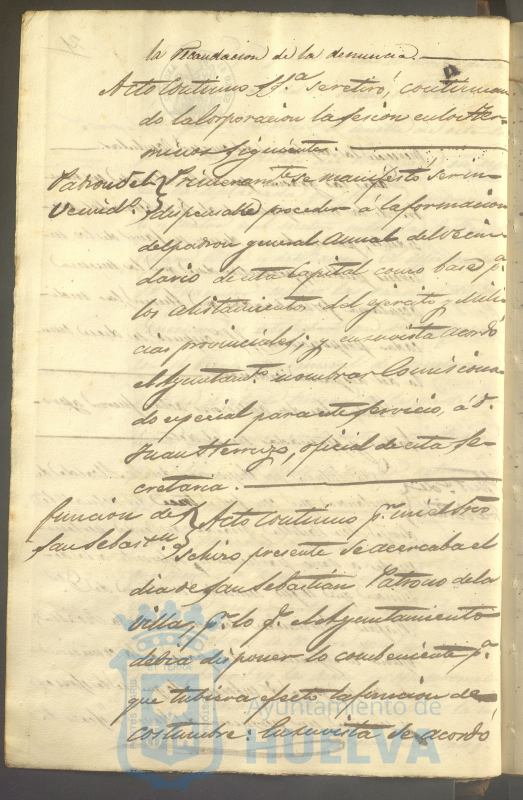 la recaudacion de la denuncia.
Acto continuo S.Sª se retiró, continuan
do la Corporacion la sesion en los ter
minos siguientes.
Padron del
Vecindº.
Primeramte. se manifestó ser in-
dispensable proceder á la formacion
del padron general Anual del Vecin
dario de esta Capital como base pª.
los alistamientos del ejercito y Mili
cias provinciales; y en su vista acordó
el Ayuntamtº. nombrar Comisiona
do especial para este servicio, á D.
Juan Herrizo, oficial de esta Se-
cretaria.
funcion de
San Sebasn.
Acto continuo pr.
se hizo presente se acercaba el
dia de San Sebastián Patrono de la
villa, pr. lo qe. el Ayuntamiento
debia disponer lo combeniente pª.
que tubiera efecto la funcion de
costumbre: En su vista se acordó
Ayuntamiento de
HUELVA